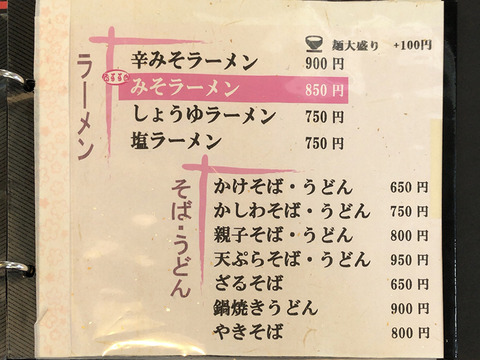 ラーメン
麺大盛り +100円
辛みそラーメン 900円
みそラーメン 850円
しょうゆラーメン 750円
塩ラーメン 750円
そば・うどん
かけそば・うどん 650円
かしわそば・うどん 750円
親子そば・うどん 800円
天ぷらそば・うどん 950円
ざるそば 650円
鍋焼きうどん 900円
やきそば 800円